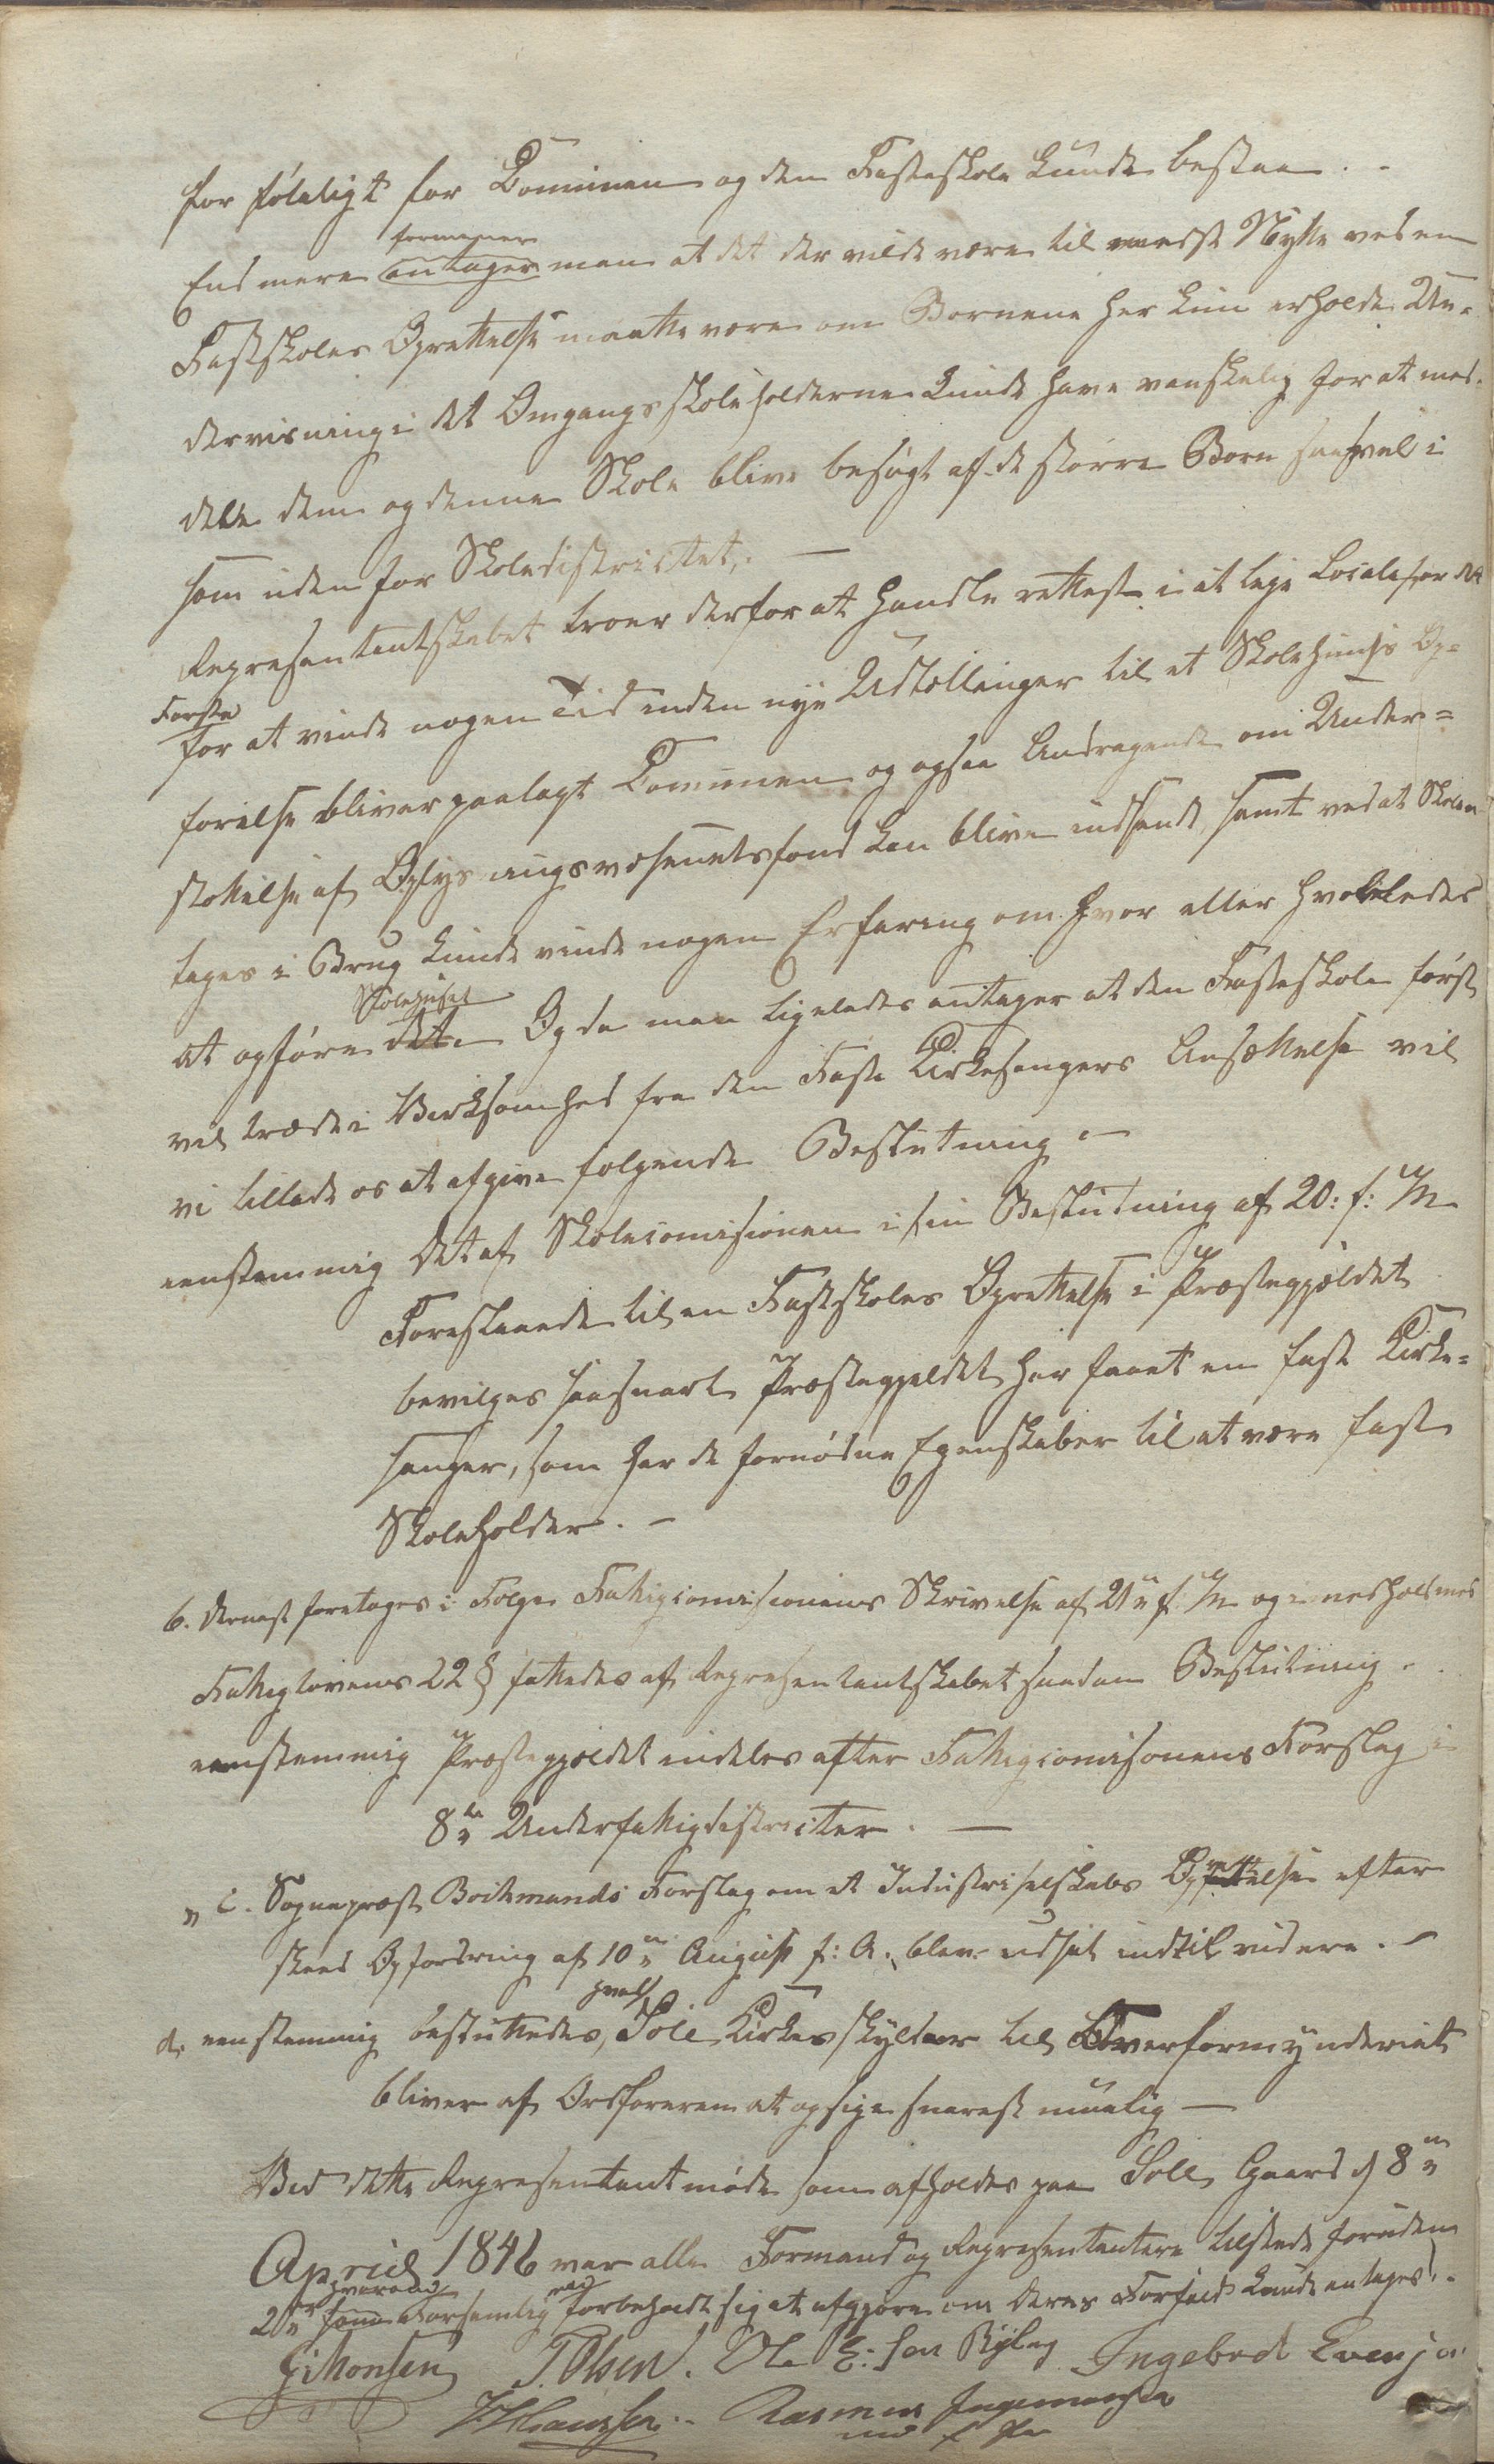 for føleligt for Communen og den Fasteskole kunde bestaa. -
formener
End mere antager man at det der vilde være til meest Nytte ved en
Fastskoles Oprettelse maatte være om Børnene her kun erholde Un-
dervisning i det Omgangsskoleholderne kunde have vanskelig for at med-
dele dem og denne Skole blive besøgt af de større Børn saavel i
som uden for Skoledistrictet. —
Repræsentantskabet troer derfor at handle rettest i at leje Locale for det
Første
for at vinde nogen Tid inden nye Udtællinger til et Skolehuuses Op-
førelse bliver paalagt Communen og ogsaa Andragende om Under=
støttelse af Oplysningsvæsenetsfond kan blive indsendt, samt ved at Skolen
tages i Brug kunde vinde nogen Erfaring om hvor eller hvorledes
Skolehuset
at opføre det. Og da man ligeledes antager at den Fasteskole først
vil træde i Virksomhed fra den Faste Kirkesangers Ansættelse vil
vi tillade os at afgive følgende Beslutning. —
eenstemmig Det af Skolecomisionen i sin Beslutning af 20: f: M
Foreslaaede til en Fastskoles Oprettelse i Præstegjældet
bevilges saasnart Præstegjeldet har faaet en fast Kirke=
sanger, som har de fornødne Egenskaber til at være fast
Skoleholder. -
b. Dernæst foretages i Følge Fattigcomisionens Skrivelse af 21 f. M og i medhold med
Fattiglovens 22 § fattedes af Repræsentantskabet saadan Beslutning.
eenstemmig Præstegjældet indeles efter Fattigcomisonens Forslag i
8te Underfattigdistricter. —
" c. Sognepræst Boitmands Forslag om et Industriselskabs Oprettelse efter
skeed Opfordring af 10de August f: A. blev udsat indtil videre. -
hvad
d. eenstemmig besluttedes, Sole Kirkes skylder til Overformynderiet
bliver af Ordføreren at opsige snarest muelig —
Ved dette Repræsentantmøde som afholdes paa Solle Gaard d 8de
April 1846 var alle Formænd og Repræsentantere tilstede foruden
hvorom
2de Forsamling forbeholdt sig at afgjøre om deres Forfald kunde antages. -
G: Monsen T. Olsen. Ole E: Søn Ryleg Ingebret Evensen
J. Hanssen. - Rasmus Ingemansen